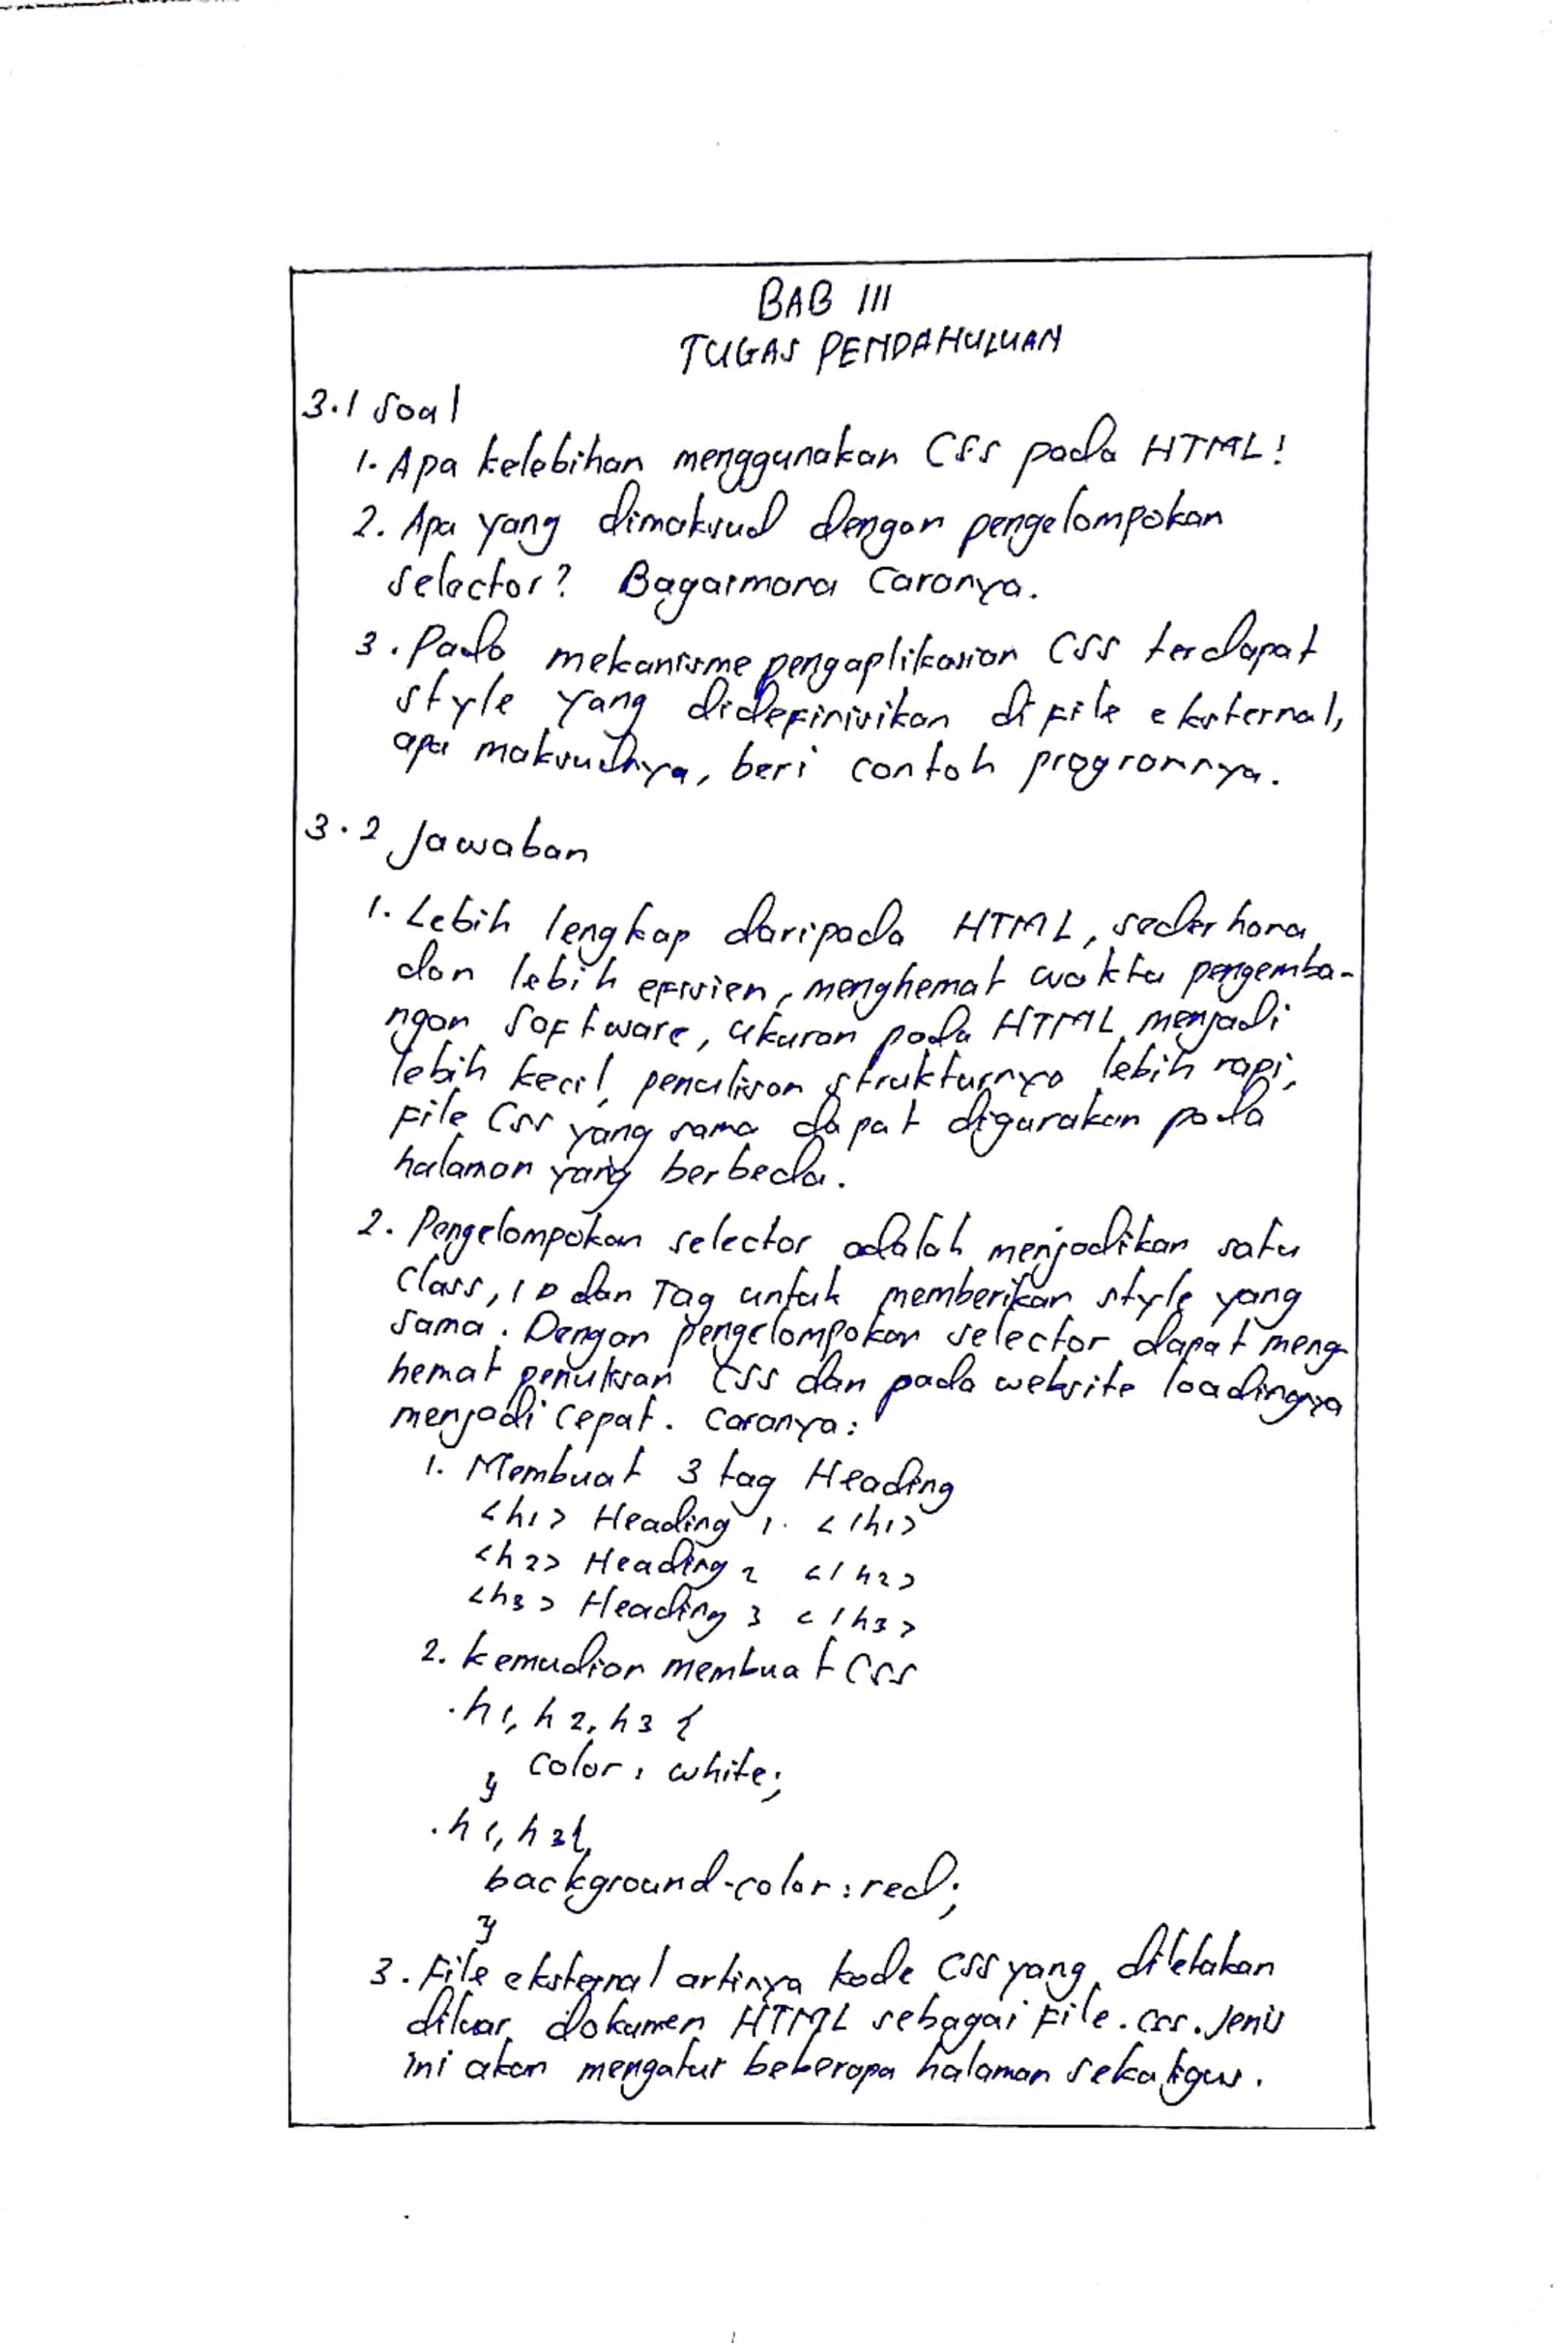 BAB III
TUGAS PENDAHULUAN
3.1 Soal
1. Apa kelebihan menggunakan CSS pada HTML!
2. Apa yang dimaksud dengan pengelompokan
selector? Bagaimana Caranya.
3. Pada mekanisme pengaplikasian CSS terdapat
style yang didefinisikan di file eksternal,
apa maksudnya, beri contoh programnya.
3.2 Jawaban
1. Lebih lengkap daripada HTML, sederhana
dan lebih efisien, menghemat waktu pengemba-
ngan software, ukuran pada HTML menjadi
lebih kecil, penulisan strukturnya lebih rapi,
file CSS yang sama dapat digunakan pada
halaman yang berbeda.
2. Pengelompokan selector adalah menjadikan satu
Class, ID dan Tag untuk memberikan style yang
sama. Dengan pengelompokan selector dapat meng-
hemat penulisan CSS dan pada website loadingnya
menjadi cepat. Caranya:
1. Membuat 3 tag Heading
<h1> Heading 1 </h1>
<h2> Heading 2 </h2>
<h3> Heading 3 </h3>
2. kemudian membuat CSS
.h1, h2, h3 {
color: white;
}
.h1, h3{
background-color: red;
}
3. File eksternal artinya kode CSS yang diletakan
diluar dokumen HTML sebagai file .css. Jenis
ini akan mengatur beberapa halaman sekaligus.